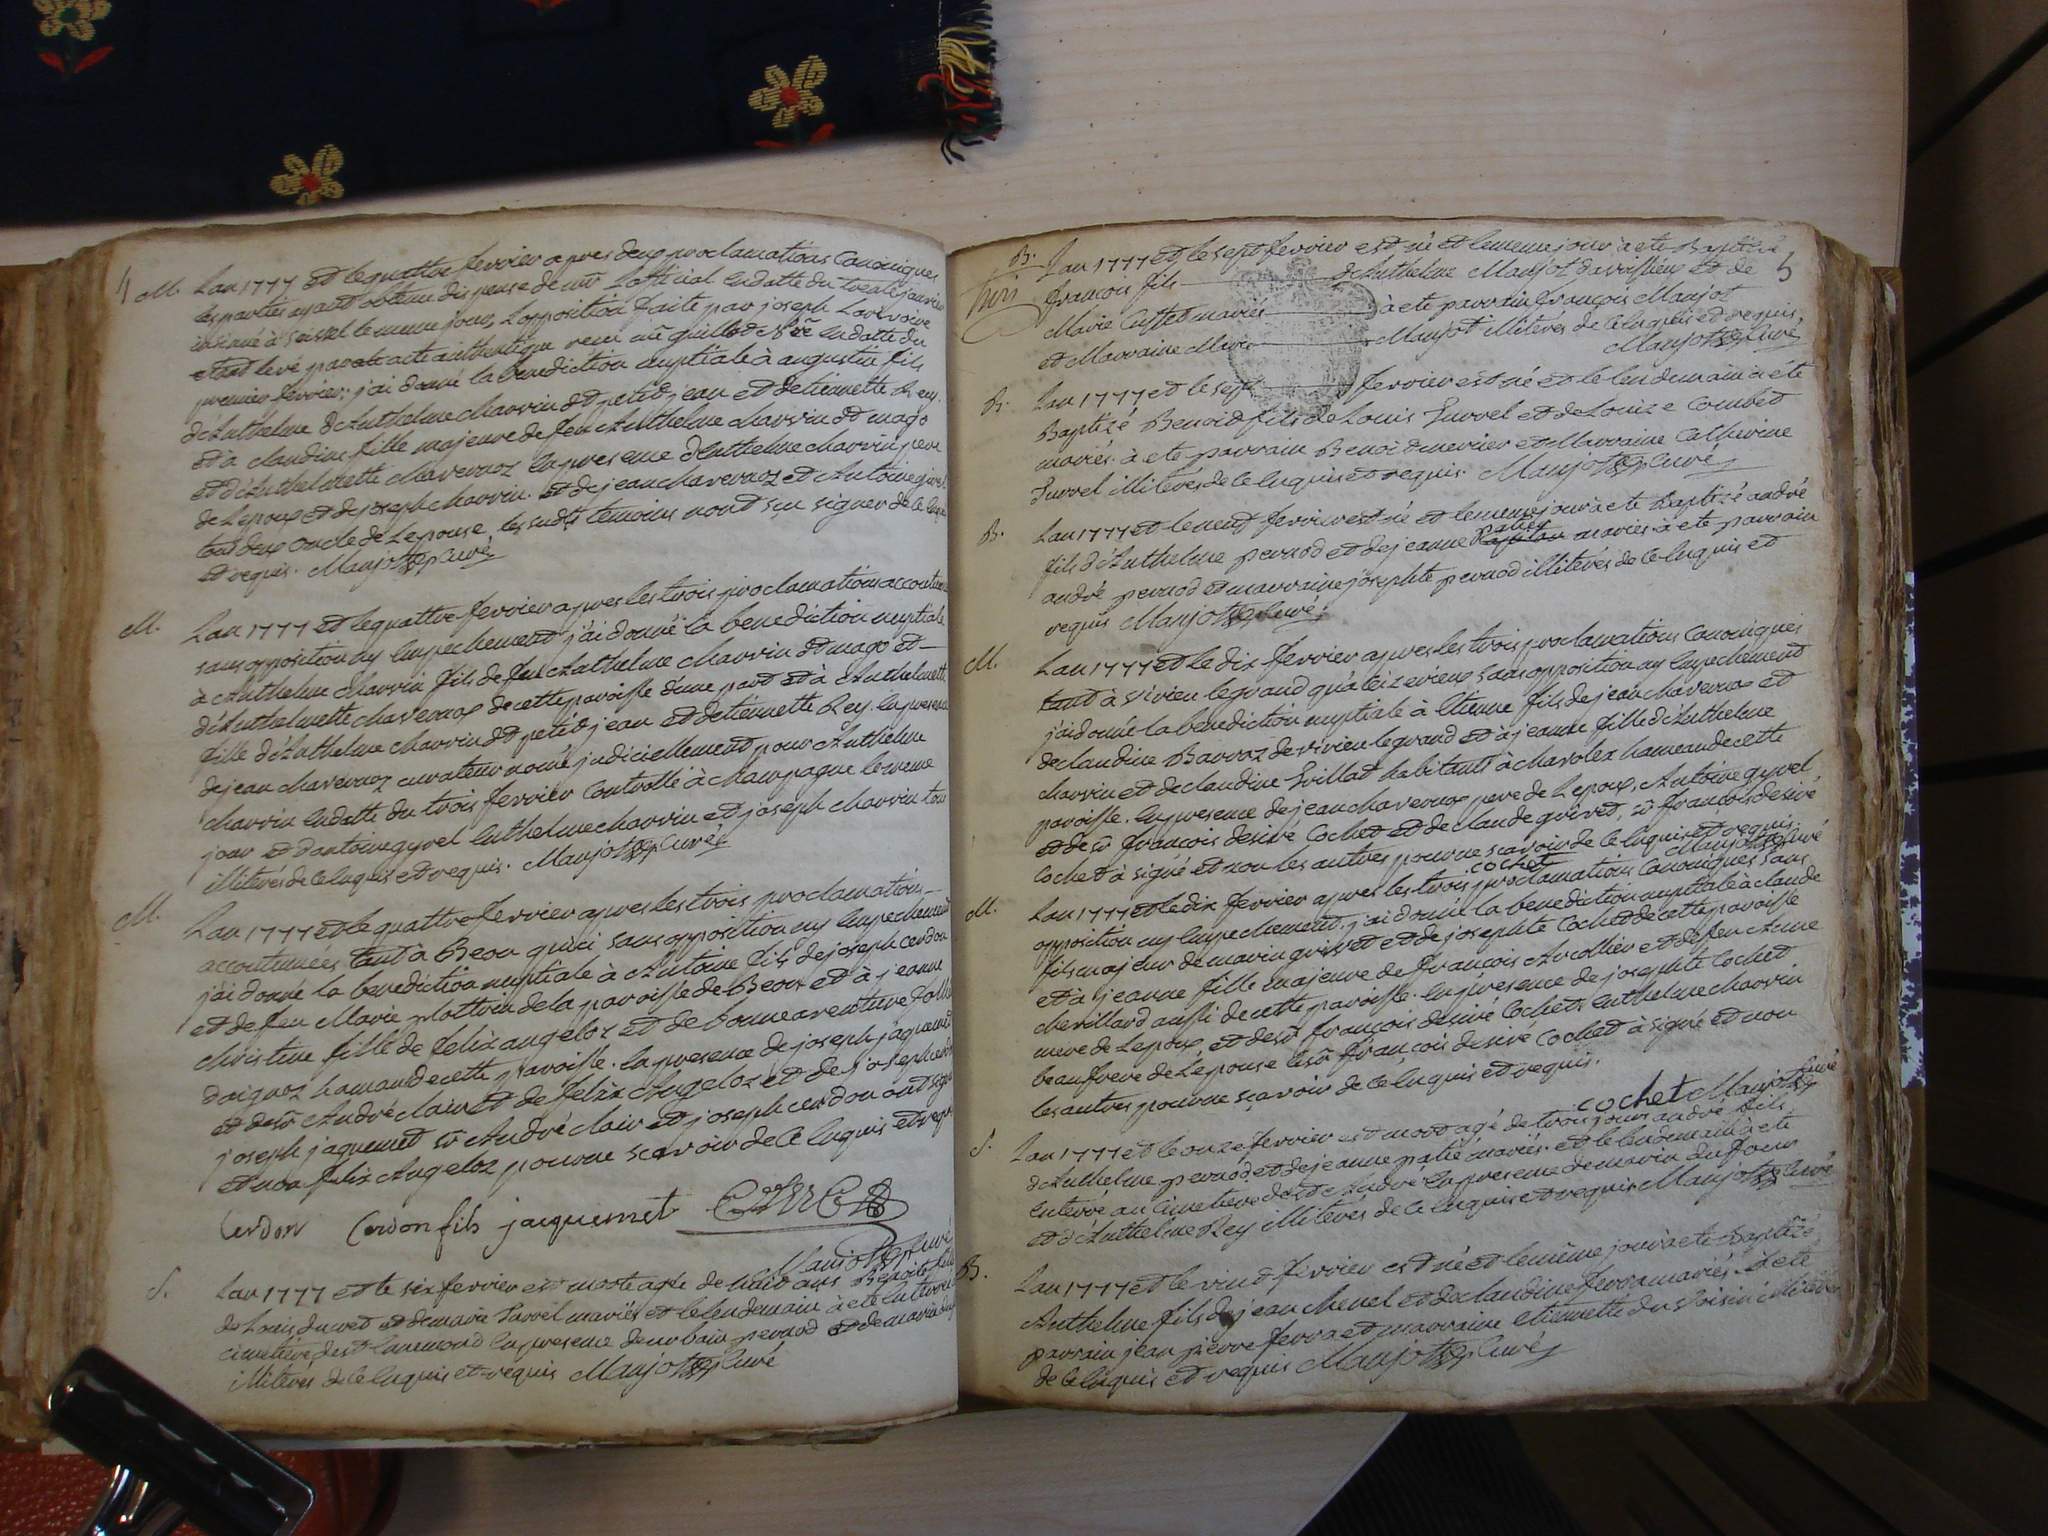 4 M. Lan 1777 et le quattre fevrier apres deux proclamations Canoniques
les parties ayant obtenu dispense de mr L'official en datte du trente janvier
insinué à Seissel le meme jour, L'opposition faite par joseph
etant levé par acte authentique receu me quillod Nre en datte du
premier fevrier; j'ai donné la benediction nuptiale à augustin fils
d'Anthelme Charvin dt petit jean et d'etiennette Rey.
et à claudine fille majeure de feu Anthelme charvin dt mago
et d'Anthelmette chavernoz en presence d'Enthelme charvin pere
de Lepoux et de joseph charvin. et de jean chavernoz et Antoine gyvel
tous deux oncle de Lepouse, les susdts temoins n'ont sçu signer de ce enquis
et requis. Manjot curé
M. Lan 1777 et le quattre fevrier apres les trois proclamations accoutumées
sans opposition ny empechement j'ai donné la benediction nuptiale
à Anthelme Charvin fils de feu Anthelme charvin dt mago et
d'Anthelmette chavernoz de cette paroisse d'une part et à Anthelmette
fille d'Anthelme charvin dt petit jean et d'etiennette Rey. en presence
de jean chavernoz curateur nomé judiciellement pour Anthelme
charvin en datte du trois fevrier Controllé à champagne le meme
jour et d'antoine gyvel Enthelme charvin et joseph charvin tous
illiterés de ce enquis et requis. Manjot curé
M. Lan 1777 et le quattre fevrier apres les trois proclamations
accoutumées tant à Beon qu'ici sans opposition ny empechement
j'ai donné la benediction nuptiale à Antoine fils de joseph cerdon
et de feu Marie plottin de la paroisse de Beon et à jeanne
christine fille de felix angeloz et de bonne aventure
d'aignoz hamau de cette paroisse. en presence de joseph jaquemet
et de sr André clair et de felix Angeloz et de joseph cerdon
joseph jaquemet sr André clair et joseph cerdon ont signé
et non felix Angeloz pour ne scavoir de ce enquis et requis
Cerdon Cerdon fils jacquemet
Manjot curé
S. Lan 1777 et le six fevrier est morte agée de huit ans Benoite fille
de Louis ducret et de marie Survel mariés et le lendemain à eté enterrée
cimetière de st laurent en presence d'urbain pernod et de marin
illiterés de ce enquis et requis Manjot curé
B. Lan 1777 et le sept fevrier est né et le meme jour à eté Baptisé 5
francois fils d'Anthelme Manjot d'avrissieu et de
Marie Cusset mariés à eté parrain francois Manjot
et Marraine Manjot illiterés de ce enquis et requis,
Manjot curé
B. Lan 1777 et le sept fevrier est né et le lendemain à eté
Baptisé Benoid fils de Louis Survel et de Louize Combet
mariés. à eté parrain Benoid mernier et Marraine Catherine
Survel illiterés de ce enquis et requis. Manjot curé
B. Lan 1777 et le neuf fevrier est né et le meme jour à eté Baptizé andré
fils d'Anthelme pernod et de jeanne patier mariés à eté parrain
andré pernod et marraine josephte pernod illiterés de ce enquis et
requis Manjot curé.
M. Lan 1777 et le dix fevrier apres les trois proclamations Canoniques
tant à vivieu legrand qu'à teizerieux sans opposition ny empechement
j'ai donné la benediction nuptiale à Etienne fils de jean chavernoz et
de claudine Barroz de vivieu legrand et à jeanne fille d'Anthelme
charvin et de claudine Guillot habitants à charolex hameau de cette
paroisse. en presence de jean chavernoz pere de Lepoux. Antoine gyvel
et de sr francois desiré Cochet et de claude grivet, sr francois desiré
Cochet à signé et non les autres pour ne scavoir de ce enquis et requis.
cochet Manjot curé
M. Lan 1777 et le dix fevrier apres les trois proclamations Canoniques sans
opposition ny empechement. j'ai donné la benediction nuptiale à claude
fils majeur de marin grivet et de josephte Cochet de cette paroisse
et à jeanne fille majeure de francois Arcollier et de feu Anne
chevillard aussi de cette paroisse. en presence de josephte Cochet
mère de Lepoux, et de sr francois desiré Cochet, enthelme charvin
beaufrere de Lépouse le sr françois desiré Cochet à signé et non
les autres pour ne sçavoir de ce enquis et requis.
cochet Manjot curé
S. Lan 1777 et le onze fevrier est mort agé de trois jours andré fils
d'Anthelme pernod et de jeanne patié mariés. et le lendemain à eté
enterré au Cimetiere de st André en presence de marin duffour
et d'Anthelme Rey illiterés de ce enquis et requis Manjot curé
B. Lan 1777 et le vint fevrier est né et le même jour à eté Baptizé
Anthelme fils de jean chenel et de claudine ferra mariés. à eté
parrain jean pierre ferra et marraine etiennette du voisin illiterés
de ce enquis et requis Manjot curé